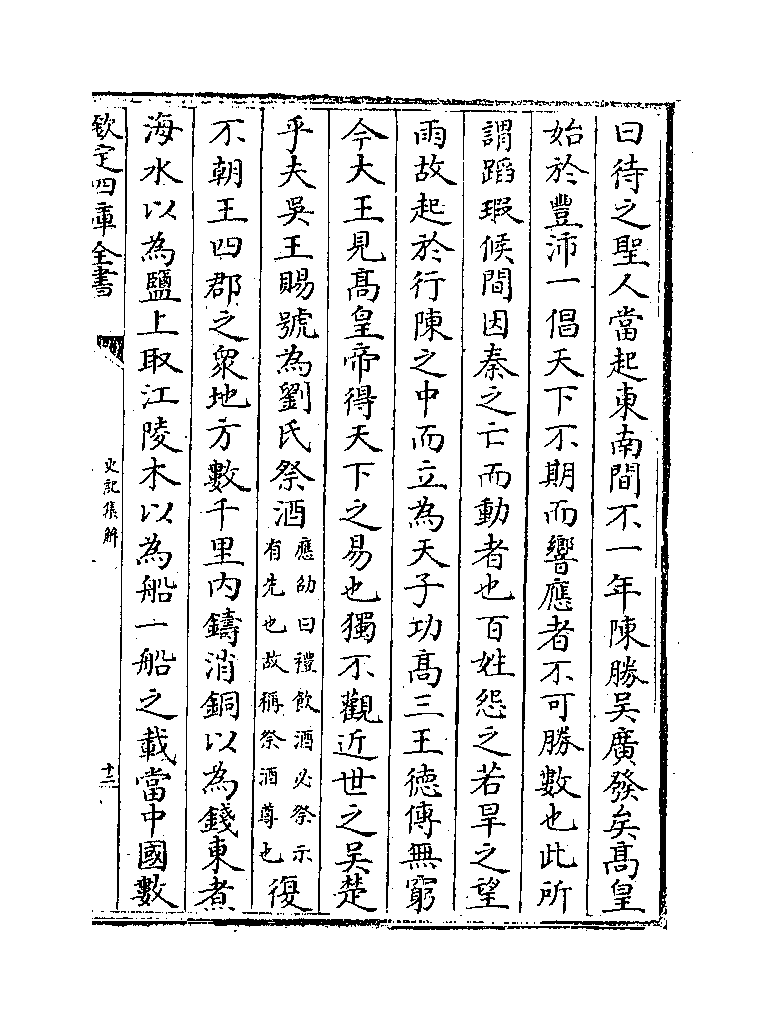 曰待之聖人當起東南間不一年陳勝吳廣發矣髙皇
始於豐沛一倡天下不期而響應者不可勝數也此所
謂蹈瑕候間因秦之亡而動者也百姓怨之若旱之望
雨故起於行陳之中而立為天子功髙三王徳傳無窮
今大王見髙皇帝得天下之易也獨不觀近世之吳楚
乎夫吳王賜號為劉氏祭酒應劭曰禮飲酒必祭示有先也故稱祭酒尊也復
不朝王四郡之衆地方數千里内鑄消銅以為錢東煮
海水以為鹽上取江陵木以為船一船之載當中國數
欽定四庫全書
史記集解
十三